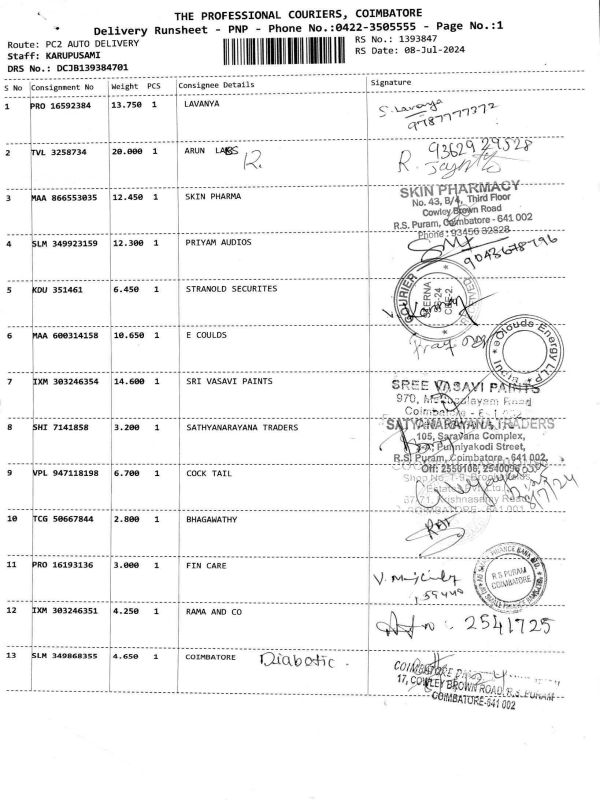 THE PROFESSIONAL COURIERS, COIMBATORE
Delivery Runsheet - PNP - Phone No.:0422-3505555 - Page No.:1
Route: PC2 AUTO DELIVERY
Staff: KARUPUSAMI
DRS No.: DCJB139384701
RS No.: 1393847
RS Date: 08-Jul-2024
S No Consignment No Weight PCS Consignee Details Signature
1 PRO 16592384 13.750 1 LAVANYA
S. Lavanya
9787777372
2 TVL 3258734 20.000 1 ARUN LABS
R.
93629 29528
R.
3 MAA 866553035 12.450 1 SKIN PHARMA
SKIN PHARMACY
No. 43, B/4, Third Floor
Cowley Brown Road
R.S. Puram, Coimbatore - 641 002
Phone: 93456 32828
4 SLM 349923159 12.300 1 PRIYAM AUDIOS
9043678796
5 KDU 351461 6.450 1 STRANOLD SECURITES
COURIER
6 MAA 600314158 10.650 1 E COULDS
eClouds Energy LLP
7 IXM 303246354 14.600 1 SRI VASAVI PAINTS
SREE VASAVI PAINTS
970,
8 SHI 7141858 3.200 1 SATHYANARAYANA TRADERS
SATYANARAYANA TRADERS
105, Saravana Complex,
Punniyakodi Street,
R.S. Puram, Coimbatore - 641 002
Off: 2550106, 2540096
9 VPL 947118198 6.700 1 COCK TAIL
10 TCG 50667844 2.800 1 BHAGAWATHY
11 PRO 16193136 3.000 1 FIN CARE
R S PURAM
COIMBATORE
12 IXM 303246351 4.250 1 RAMA AND CO
2541725
13 SLM 349868355 4.650 1 COIMBATORE Diabetic.
COIMBATORE
17, COWLEY BROWN ROAD, R.S. PURAM
COIMBATORE-641 002